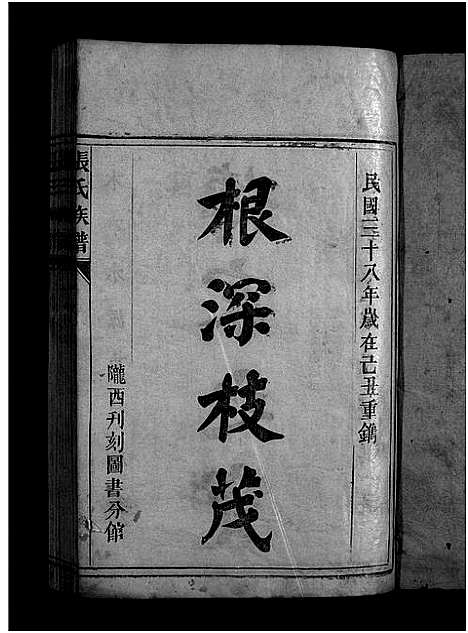 民國三十八年歲在己丑重鐫
根深枝茂
隴西刊刻圖書分館
張氏族譜